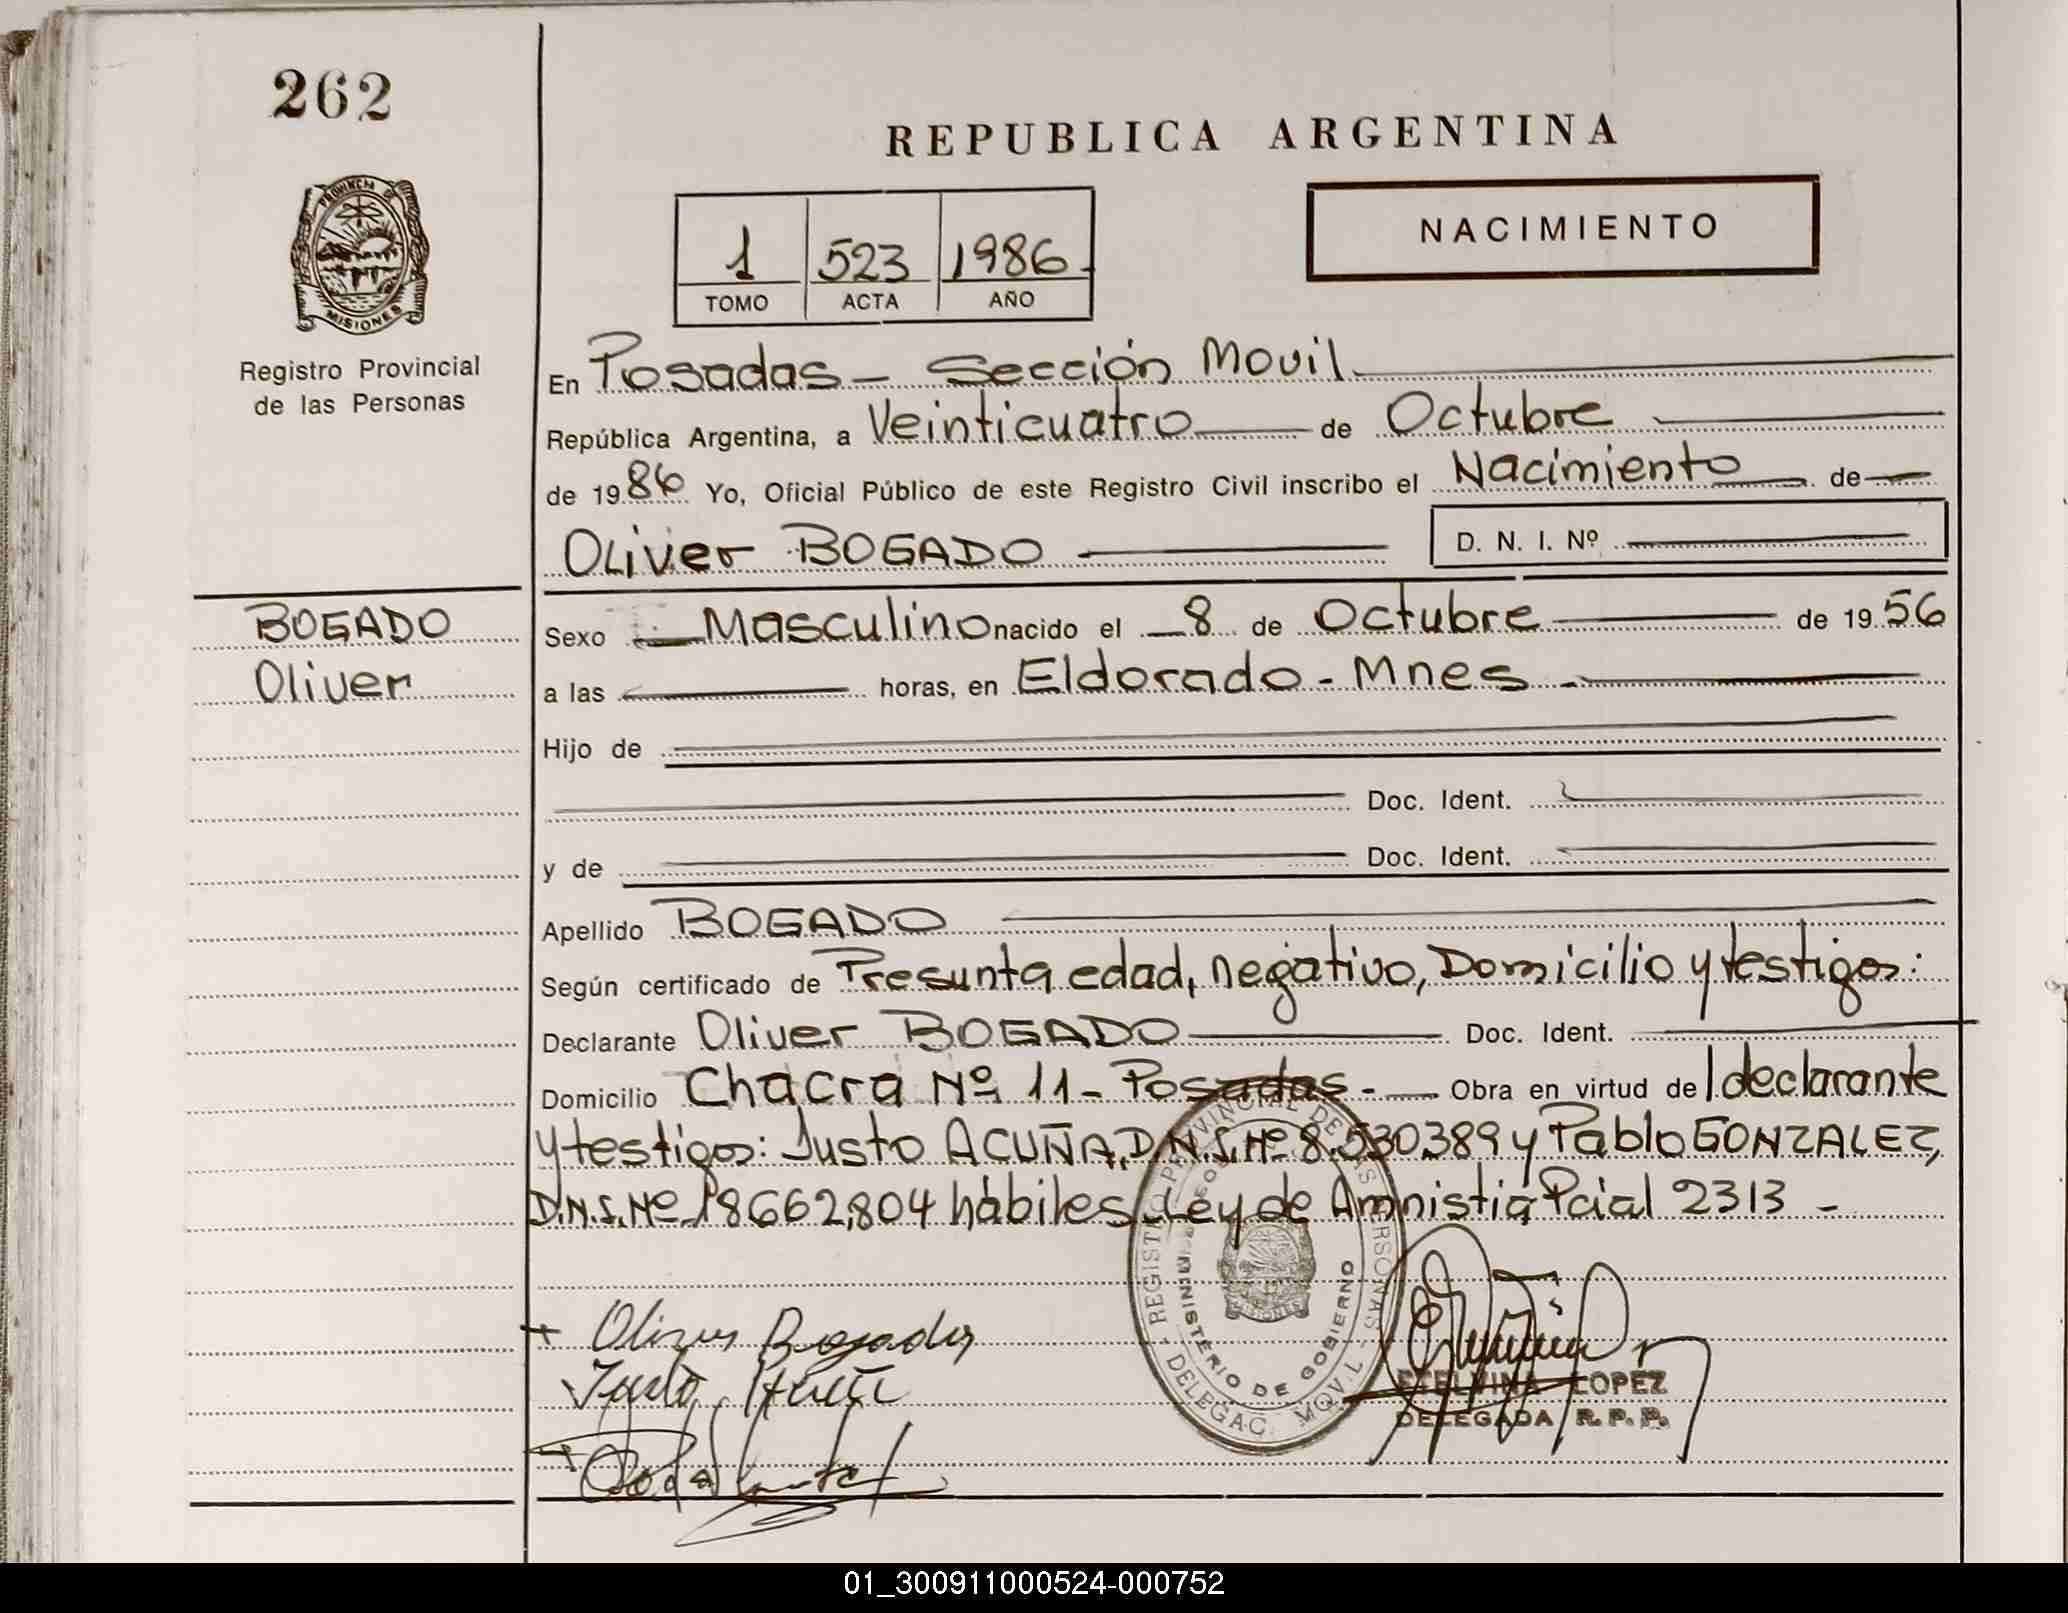 262
REPUBLICA ARGENTINA
PROVINCIA DE
MISIONES
Registro Provincial
de las Personas
1 523 1986
TOMO ACTA AÑO
NACIMIENTO
En Posadas - Sección Movil
República Argentina, a Veinticuatro de Octubre
de 1986 Yo, Oficial Público de este Registro Civil inscribo el Nacimiento de
Oliver BOGADO D. N. I. Nº
BOGADO
Oliver
Sexo Masculino nacido el 8 de Octubre de 1956
a las horas, en Eldorado - Mnes
Hijo de
Doc. Ident.
y de Doc. Ident.
Apellido BOGADO
Según certificado de Presunta edad, negativo, Domicilio y testigos:
Declarante Oliver BOGADO Doc. Ident.
Domicilio Chacra Nº 11 - Posadas - Obra en virtud de l declarante
y testigos: Justo ACUÑA, D.N.I. Nº 8.530.389 y Pablo GONZALEZ,
D.N.I. Nº 18662.804 hábiles. Ley de Amnistia Pcial 2313 -
REGISTRO PROVINCIAL DE LAS PERSONAS
MINISTERIO DE GOBIERNO
MISIONES
DELEGAC. MOVIL
Oliver Bogado
Justo Acuña
ETELVINA LOPEZ
DELEGADA R.P.P.
01_300911000524-000752